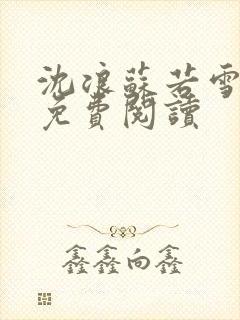 沈浪蘇若雪
免費閱讀
鑫鑫向鑫